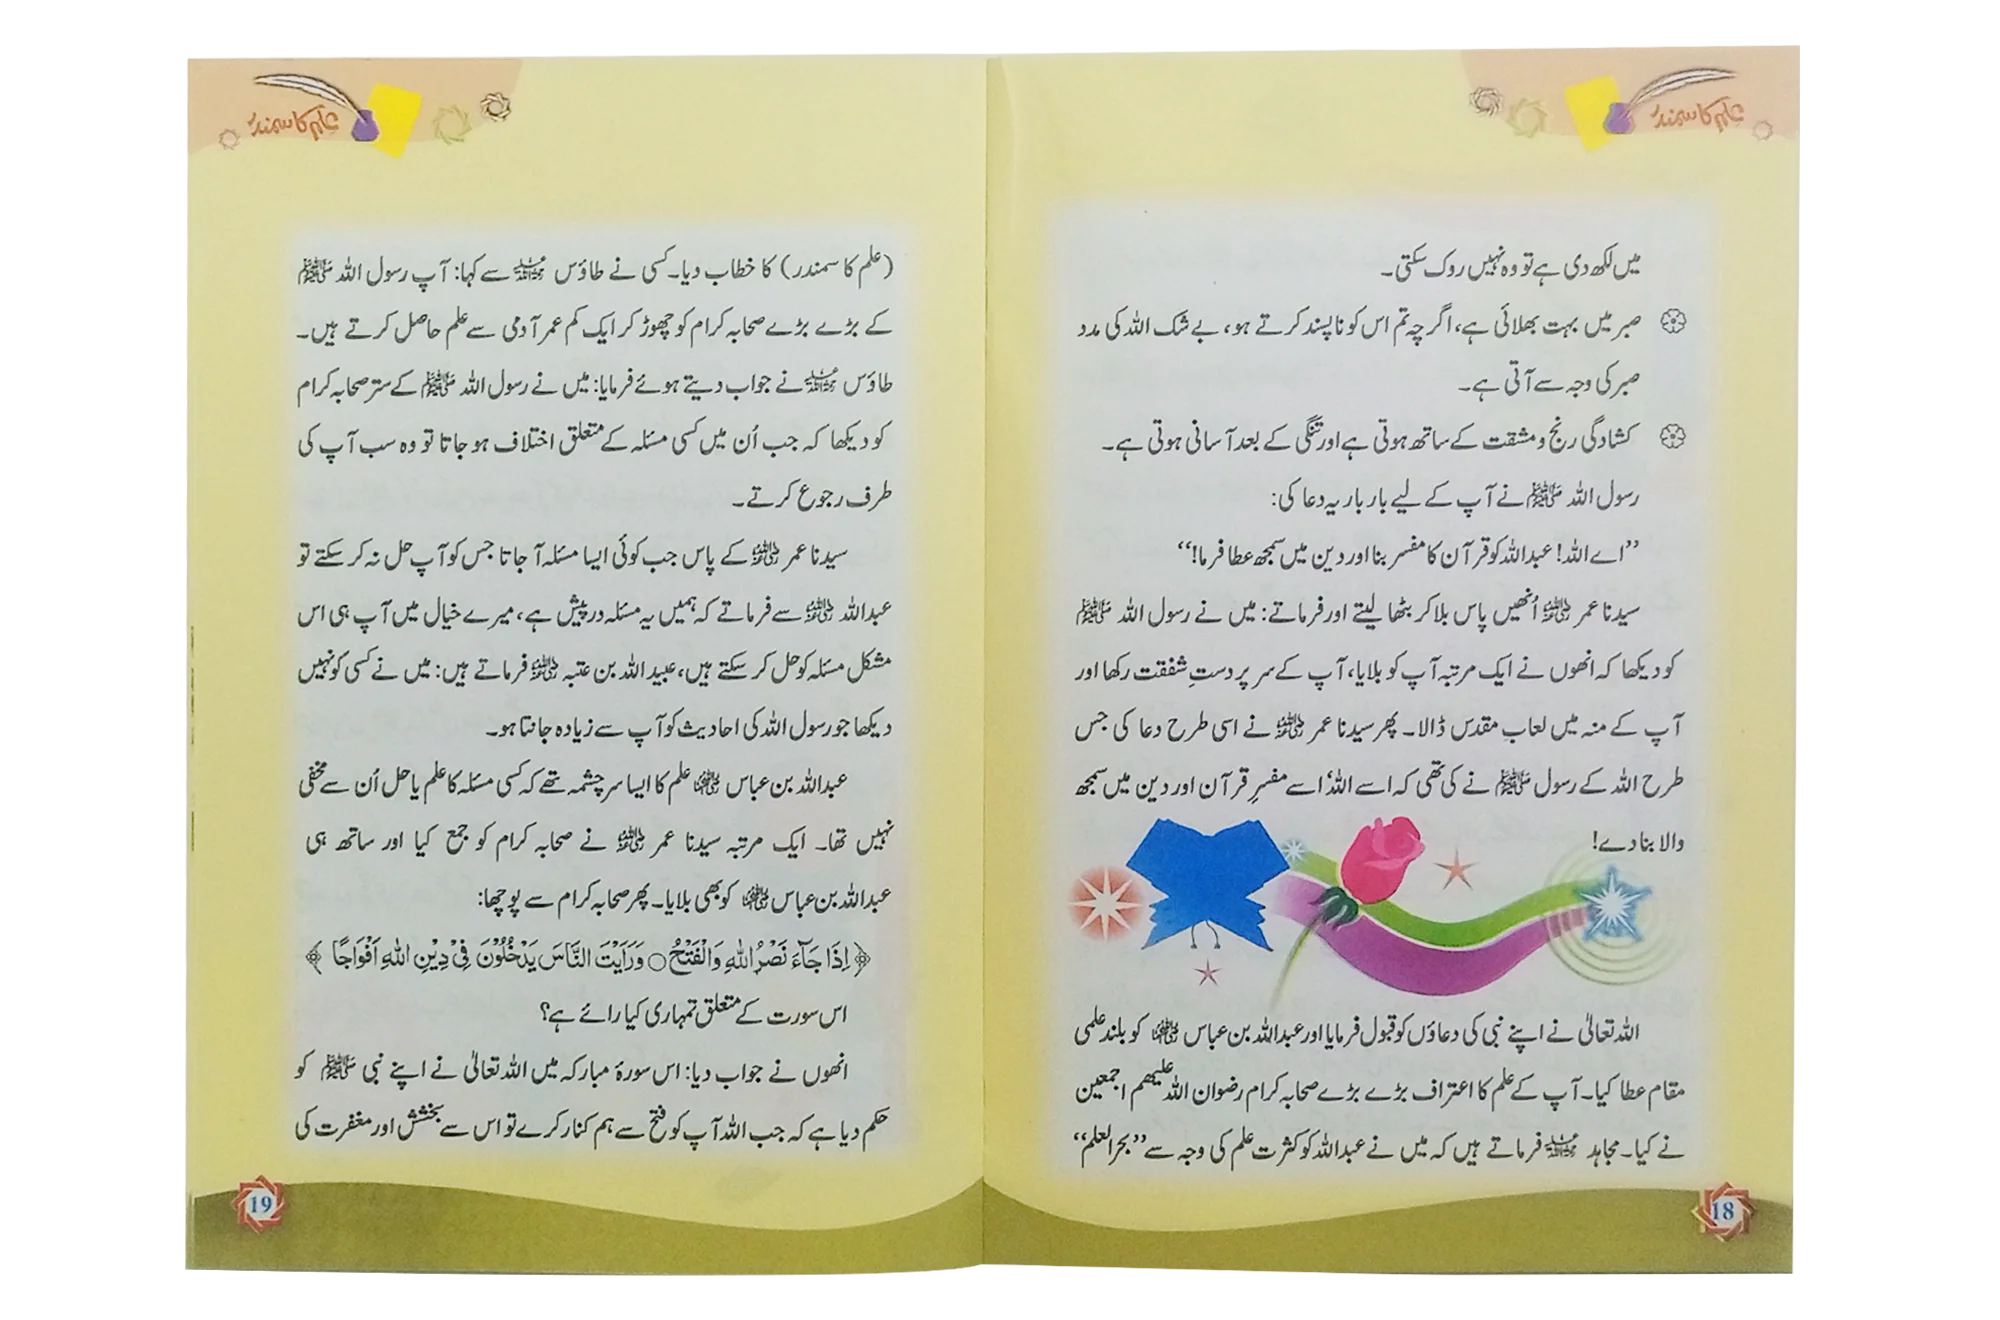 میں لکھ دی ہے تو وہ نہیں روک سکتی۔
صبر میں بہت بھلائی ہے، اگرچہ تم اس کو ناپسند کرتے ہو، بے شک اللہ کی مدد
صبر کی وجہ سے آتی ہے۔
کشادگی رنج و مشقت کے ساتھ ہوتی ہے اور تنگی کے بعد آسانی ہوتی ہے۔
رسول اللہ ﷺ نے آپ کے لیے بار بار یہ دعا کی:
”اے اللہ! عبداللہ کو قرآن کا مفسر بنا اور دین میں سمجھ عطا فرما!“
سیدنا عمر رضی اللہ عنہ اُنھیں پاس بلا کر بٹھا لیتے اور فرماتے: میں نے رسول اللہ ﷺ
کو دیکھا کہ انھوں نے ایک مرتبہ آپ کو بلایا، آپ کے سر پر دستِ شفقت رکھا اور
آپ کے منہ میں لعاب مقدس ڈالا۔ پھر سیدنا عمر رضی اللہ عنہ نے اسی طرح دعا کی جس
طرح اللہ کے رسول ﷺ نے کی تھی کہ اے اللہ! اسے مفسرِ قرآن اور دین میں سمجھ
والا بنا دے!
اللہ تعالیٰ نے اپنے نبی کی دعاؤں کو قبول فرمایا اور عبداللہ بن عباس رضی اللہ عنہما کو بلند علمی
مقام عطا کیا۔ آپ کے علم کا اعتراف بڑے بڑے صحابہ کرام رضوان اللہ علیھم اجمعین
نے کیا۔ مجاہد رحمہ اللہ فرماتے ہیں کہ میں نے عبداللہ کو کثرت علم کی وجہ سے ”بحر العلم“
18
(علم کا سمندر) کا خطاب دیا۔ کسی نے طاؤس رحمہ اللہ سے کہا: آپ رسول اللہ ﷺ
کے بڑے بڑے صحابہ کرام کو چھوڑ کر ایک کم عمر آدمی سے علم حاصل کرتے ہیں۔
طاؤس رحمہ اللہ نے جواب دیتے ہوئے فرمایا: میں نے رسول اللہ ﷺ کے ستر صحابہ کرام
کو دیکھا کہ جب اُن میں کسی مسئلہ کے متعلق اختلاف ہو جاتا تو وہ سب آپ کی
طرف رجوع کرتے۔
سیدنا عمر رضی اللہ عنہ کے پاس جب کوئی ایسا مسئلہ آ جاتا جس کو آپ حل نہ کر سکتے تو
عبداللہ رضی اللہ عنہ سے فرماتے کہ ہمیں یہ مسئلہ درپیش ہے، میرے خیال میں آپ ہی اس
مشکل مسئلہ کو حل کر سکتے ہیں، عبیداللہ بن عتبہ رضی اللہ عنہ فرماتے ہیں: میں نے کسی کو نہیں
دیکھا جو رسول اللہ کی احادیث کو آپ سے زیادہ جانتا ہو۔
عبداللہ بن عباس رضی اللہ عنہما علم کا ایسا سرچشمہ تھے کہ کسی مسئلہ کا علم یا حل اُن سے مخفی
نہیں تھا۔ ایک مرتبہ سیدنا عمر رضی اللہ عنہ نے صحابہ کرام کو جمع کیا اور ساتھ ہی
عبداللہ بن عباس رضی اللہ عنہما کو بھی بلایا۔ پھر صحابہ کرام سے پوچھا:
﴿اِذَا جَآءَ نَصْرُ اللّٰہِ وَالْفَتْحُ ○ وَرَاَیْتَ النَّاسَ یَدْخُلُوْنَ فِیْ دِیْنِ اللّٰہِ اَفْوَاجًا﴾
اس سورت کے متعلق تمہاری کیا رائے ہے؟
انھوں نے جواب دیا: اس سورۂ مبارکہ میں اللہ تعالیٰ نے اپنے نبی ﷺ کو
حکم دیا ہے کہ جب اللہ آپ کو فتح سے ہم کنار کرے تو اس سے بخشش اور مغفرت کی
19